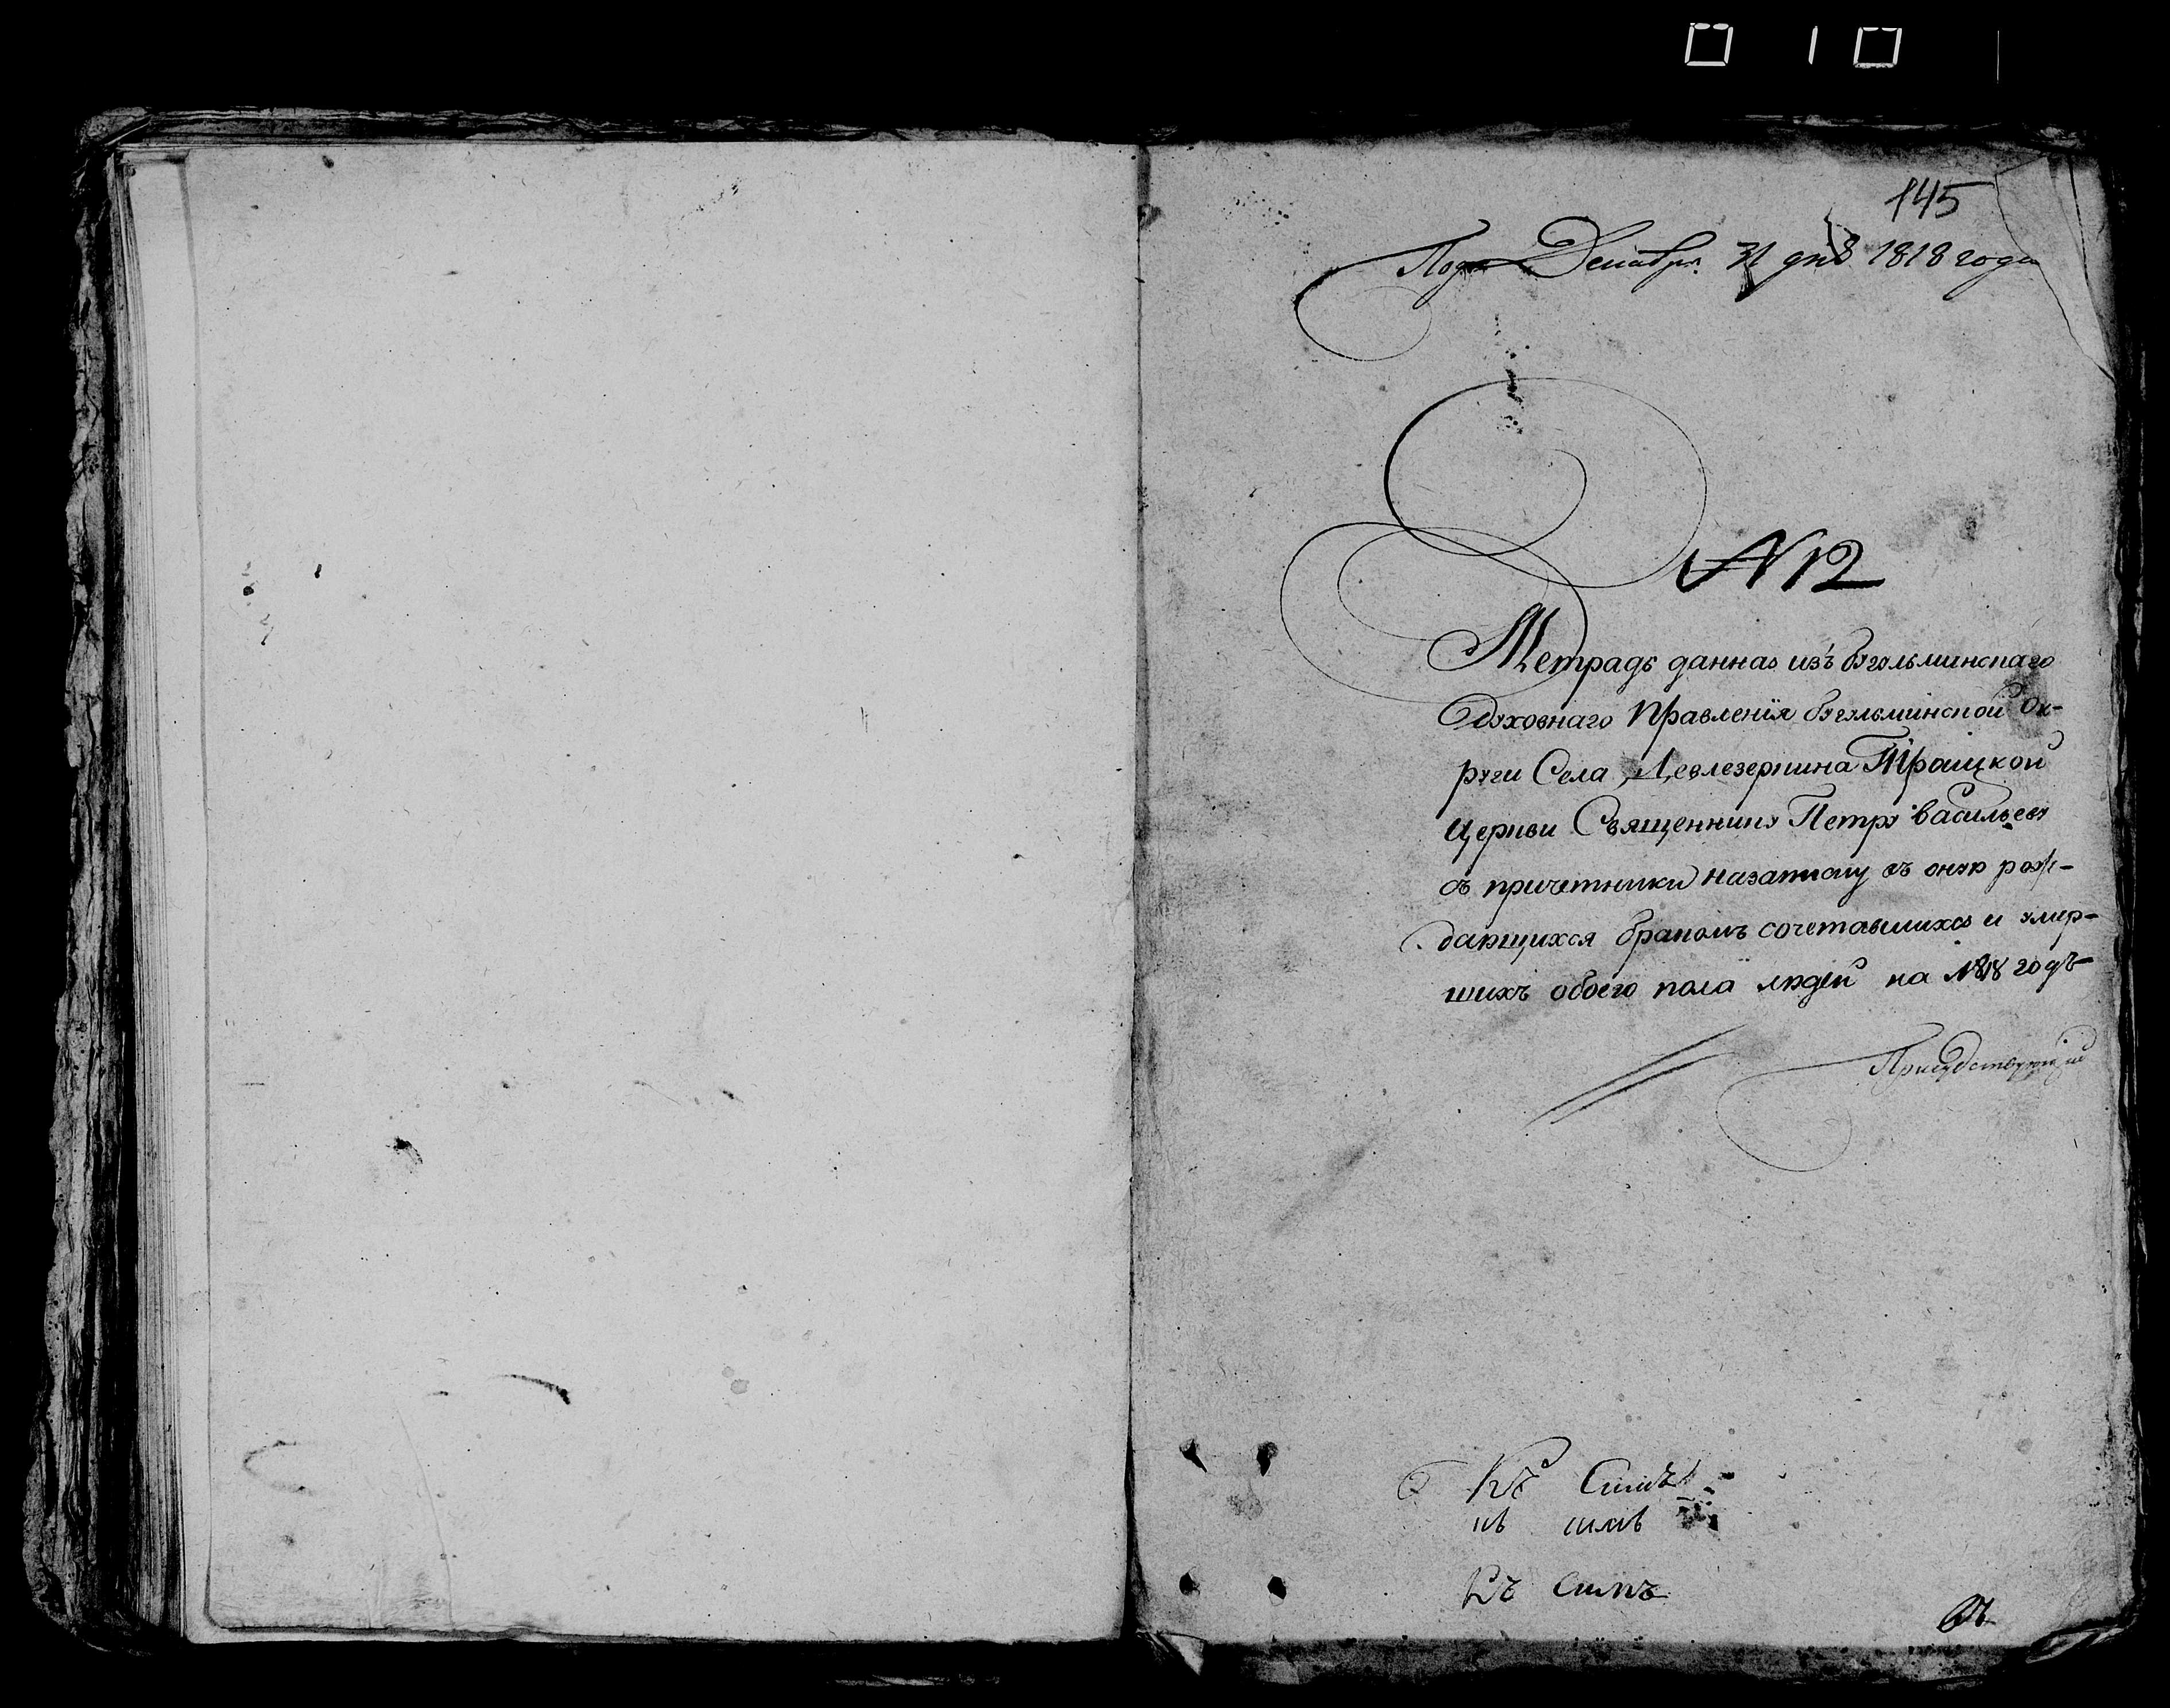 145
Пода Декабря 31 дня 1818 года
N 12
Тетрадь данная изъ бугульминскаго
Духовнаго Правленїя бугульминской Ок-
руги Села Девлезеркина Троицкой
Церкви Священнику Петру васильеву
съ причетники на записку въ оную рож-
дающихся бракомъ сочетавшихся и умер-
шихъ обоего пола людей на 1818 годъ
Присудствующий
Къ Симъ
къ симъ
Къ Симъ